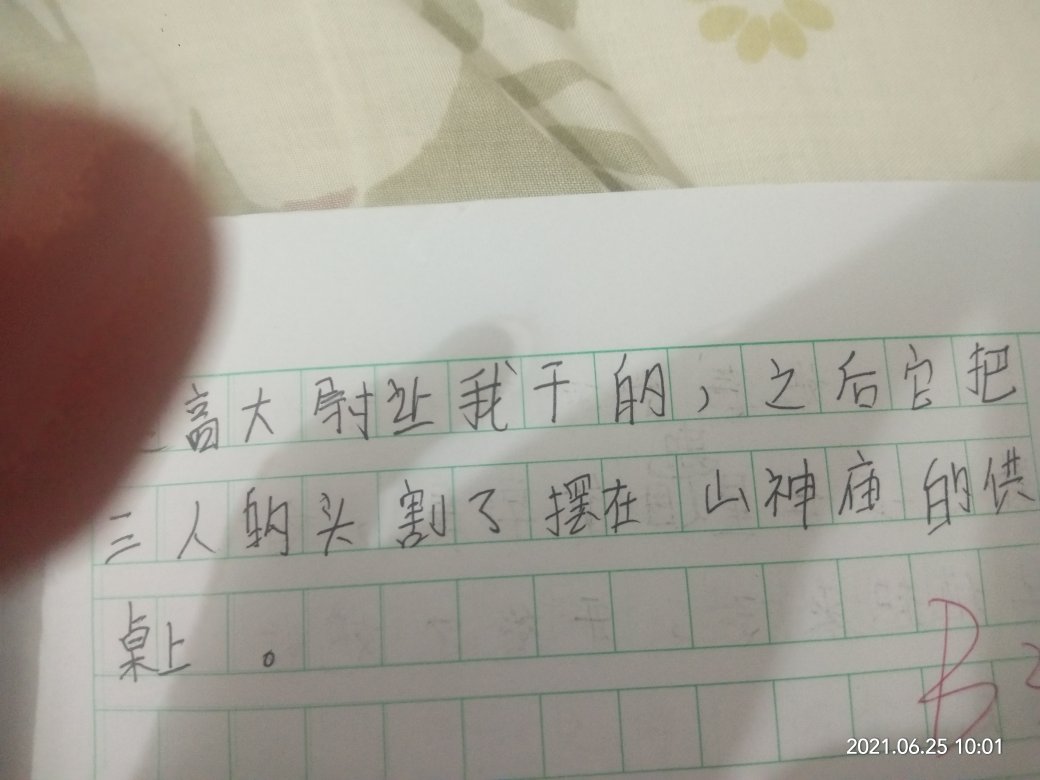 高大尉让我干的，之后它把
三人的头割了摆在山神庙的供
桌上。
B
2021.06.25 10:01